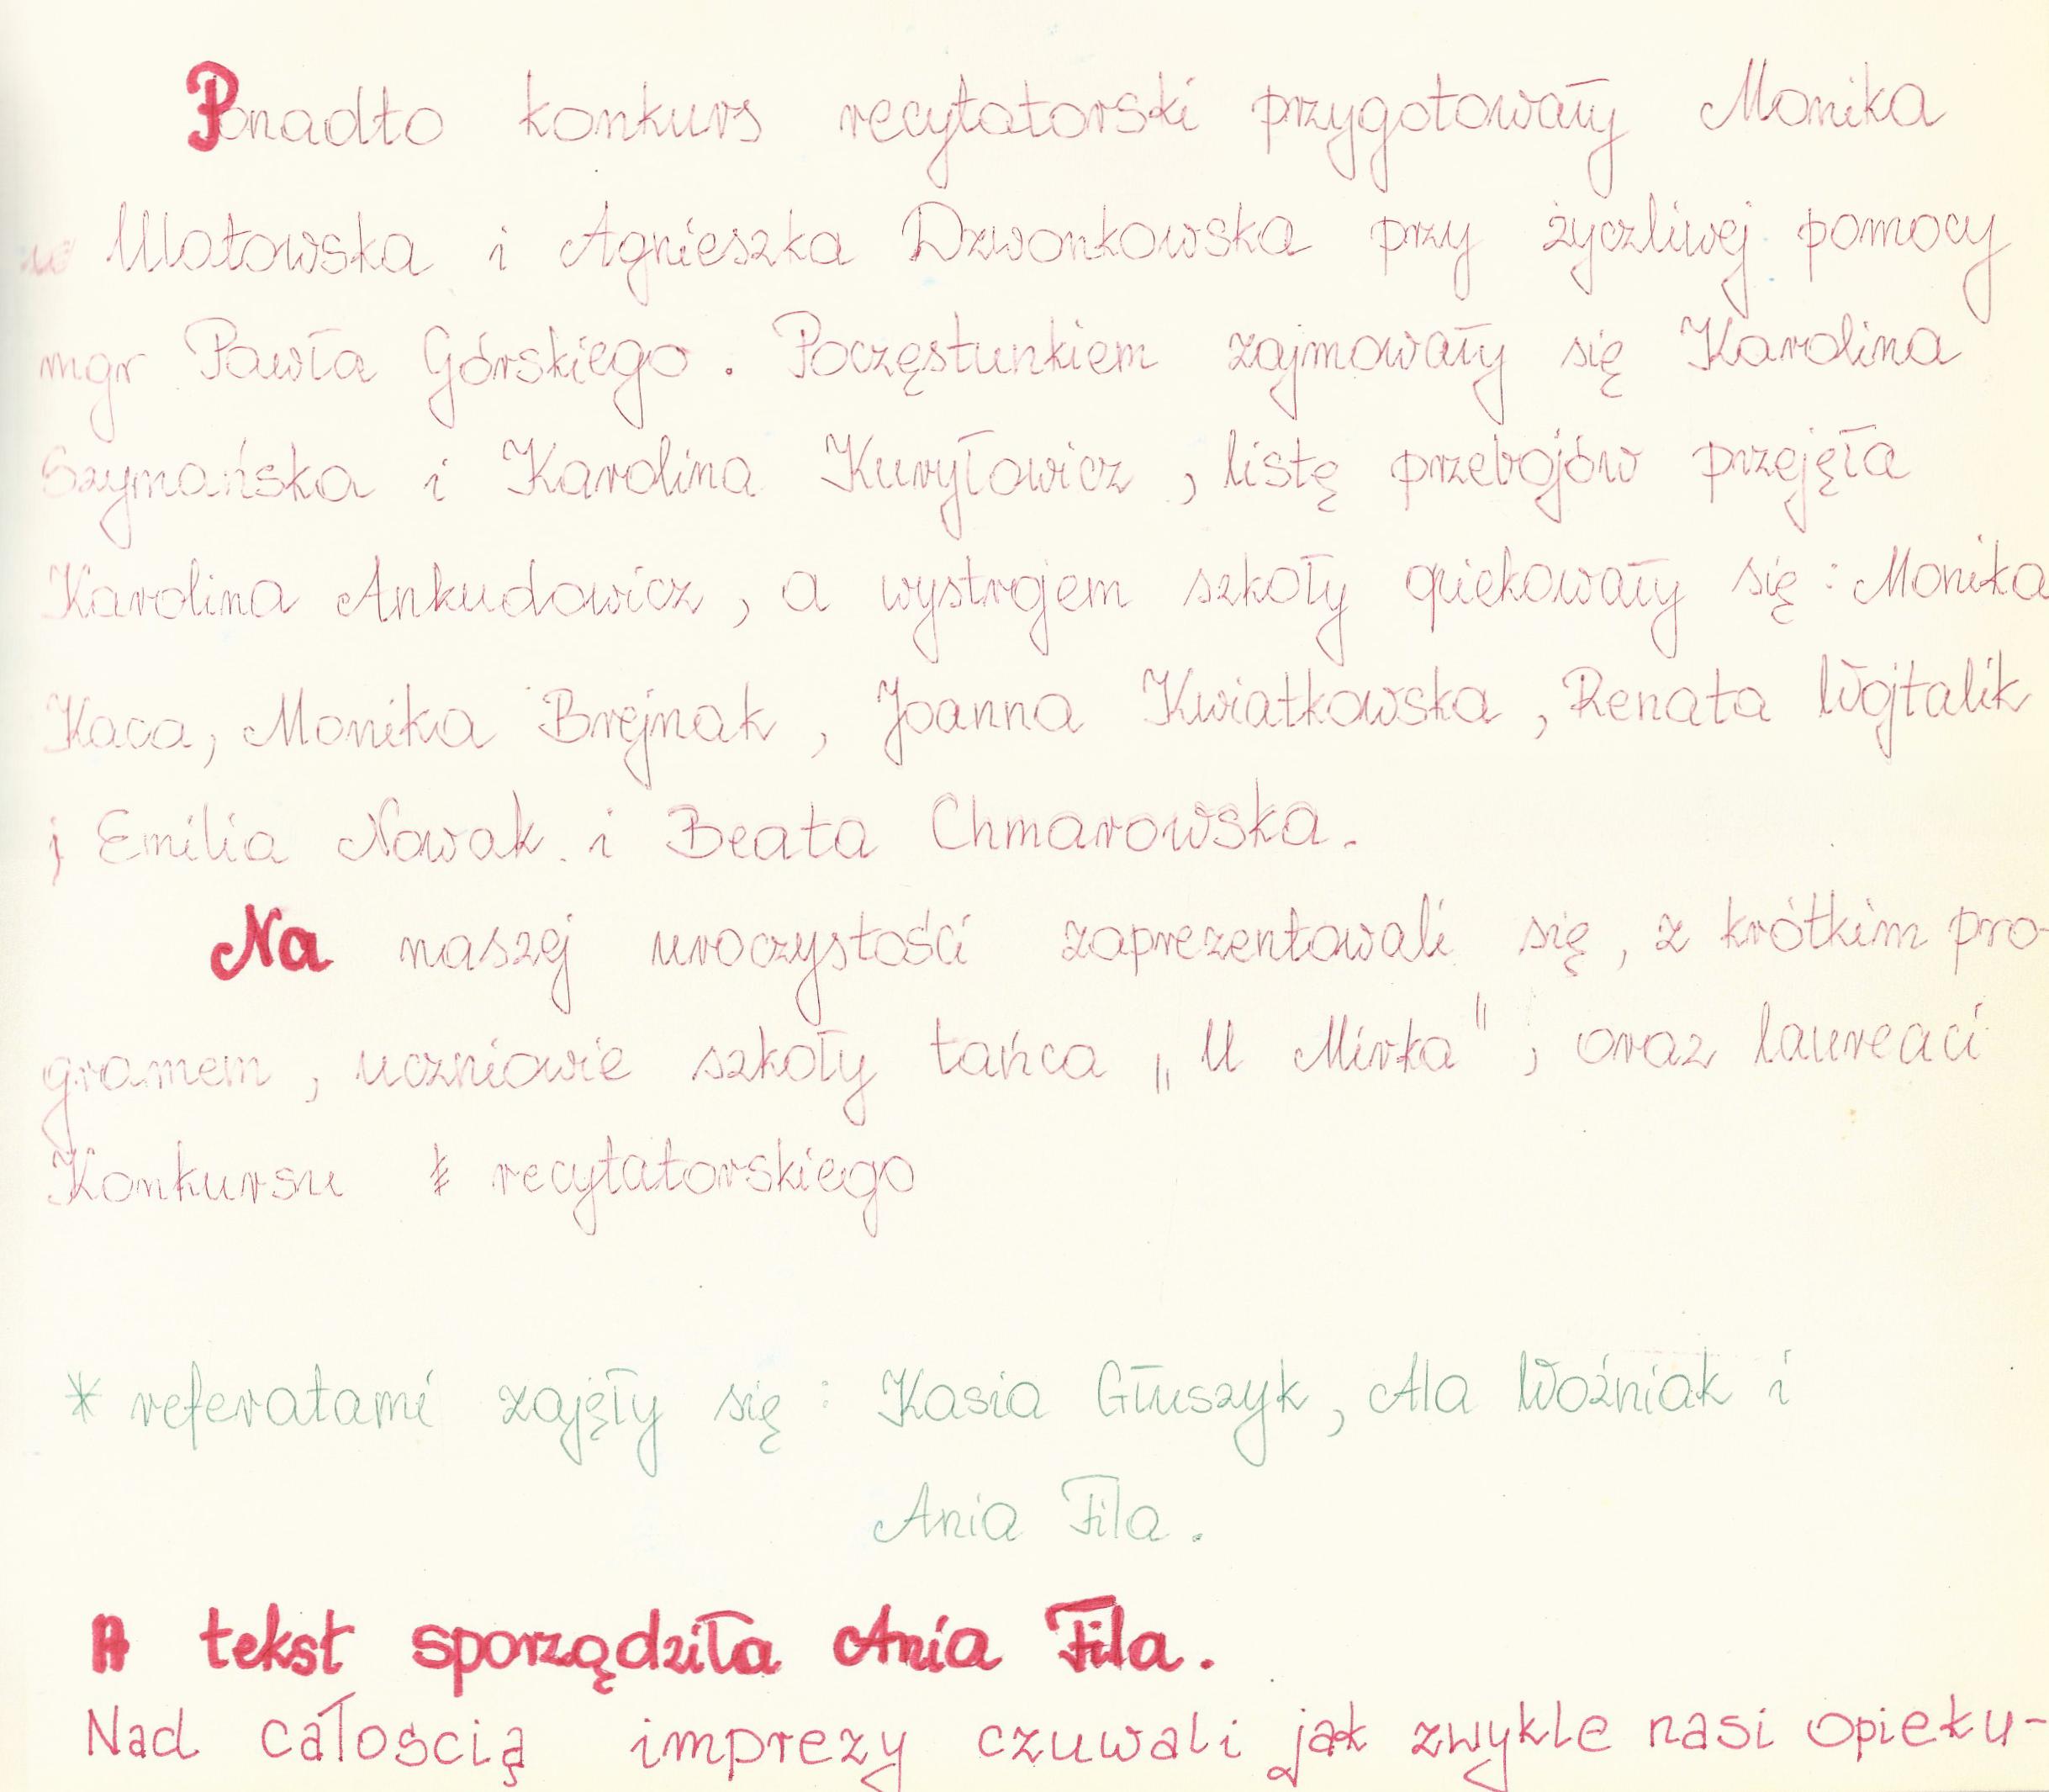 Ponadto konkurs recytatorski przygotowały Monika
Ulatowska i Agnieszka Dzwonkowska przy życzliwej pomocy
mgr Pawła Górskiego. Poczęstunkiem zajmowały się Karolina
Szymańska i Karolina Kuryłowicz, listę przebojów przejęła
Karolina Ankudowicz, a wystrojem szkoły opiekowały się: Monika
Kaca, Monika Brejnak, Joanna Kwiatkowska, Renata Wojtalik
i Emilia Nowak i Beata Chmarowska.
Na naszej uroczystości zaprezentowali się, z krótkim pro-
gramem, uczniowie szkoły tańca „U Mirka", oraz laureaci
Konkursu recytatorskiego
* referatami zajęły się: Kasia Głuszyk, Ala Woźniak i
Ania Fila.
A tekst sporządziła Ania Fila.
Nad całością imprezy czuwali jak zwykle nasi opieku-